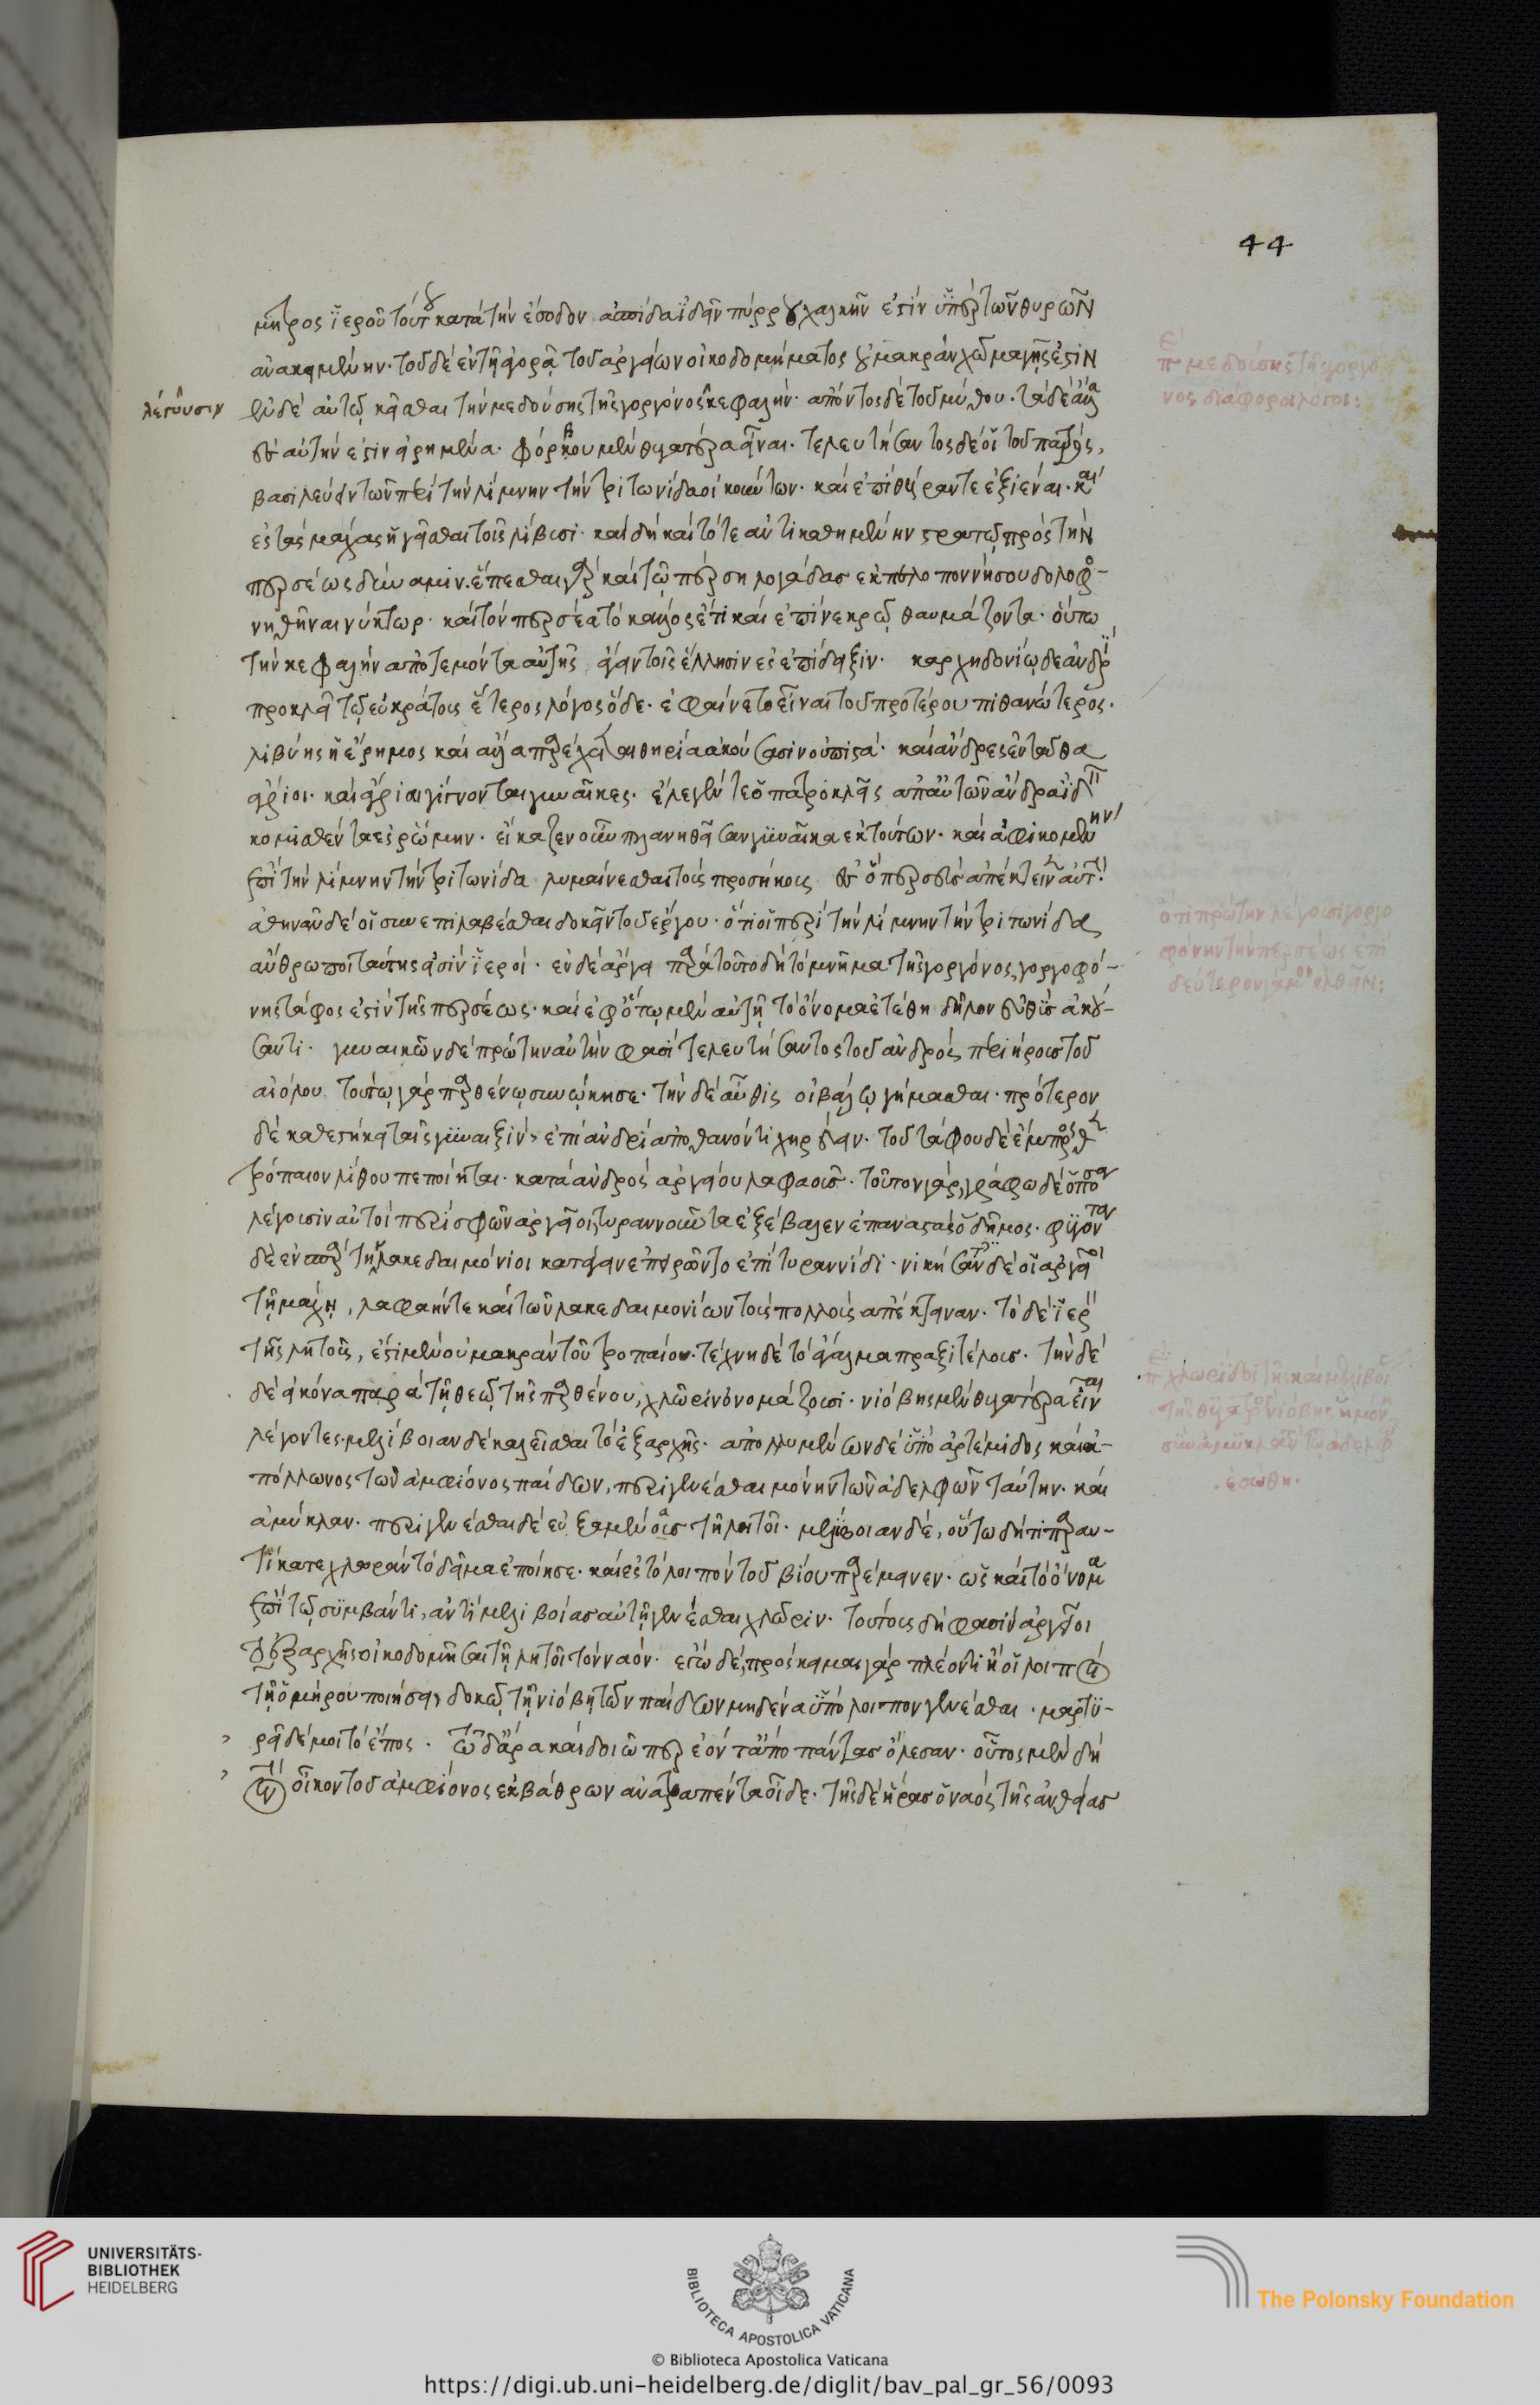 44
μητρος ἱεροῦ τούτου κατὰ τὴν ἔσοδον ἀσπίδα ἰδεῖν πύρρου χαλκῆν ἐστὶν ὑπὲρ τῶν θυρῶν
ἀνακειμένην. τοῦ δὲ ἐν τῇ ἀγορᾷ τοῦ ἀργείων οἰκοδομήματος οὐ μακρὰν χῶμα γῆς ἐστιν
λέγουσιν
ἐν δὲ αὐτῷ κεῖσθαι τὴν μεδούσης τῆς γοργόνος κεφαλήν. ἀπόντος δὲ τοῦ μύθου. τάδε ἄλλα
ἐς αὐτήν ἐστιν εἰρημένα. φόρκου μὲν θυγατέρα εἶναι. τελευτήσαντος δέ οἱ τοῦ πατρὸς,
βασιλεύειν τῶν περὶ τὴν λίμνην τὴν τριτωνίδα οἰκούντων. καὶ ἐπὶ θήραν τε ἐξιέναι. καὶ
ἐς τὰς μάχας ἡγεῖσθαι τοῖς λίβυσι. καὶ δὴ καὶ τότε ἀντικαθημένην στρατῷ πρὸς τὴν
περσέως δύναμιν. ἕπεσθαι γὰρ καὶ τῷ περσῆ λογάδας ἐκ πελοποννήσου δολοφο-
νηθῆναι νύκτωρ. καὶ τὸν περσέα τὸ κάλλος ἔτι καὶ ἐπὶ νεκρῷ θαυμάζοντα. οὕτω
τὴν κεφαλὴν ἀποτεμόντα αὐτῆς ἄγειν τοῖς ἕλλησιν ἐς ἐπίδειξιν. καρχηδονίῳ δὲ ἀνδρὶ
προκλεῖ τῷ εὐκράτους ἕτερος λόγος ὅδε. ἐφαίνετο εἶναι τοῦ προτέρου πιθανώτερος.
λιβύης ἡ ἔρημος καὶ ἄλλα παρέχεται θηρία ἀκούσασιν οὐ πιστά. καὶ ἄνδρες ἐνταῦθα
ἄγριοι. καὶ ἄγριαι γίγνονται γυναῖκες. ἔλεγέν τε ὁ προκλῆς ἀπ' αὐτῶν ἄνδρα ἰδεῖν
κομισθέντα ἐς ῥώμην. εἴκαζεν οὖν πλανηθεῖσαν γυναῖκα ἐκ τούτων. καὶ ἀφικομένην
ἐπὶ τὴν λίμνην τὴν τριτωνίδα λυμαίνεσθαι τοὺς προσοίκους ἐς ὃ περσεὺς ἀπέκτεινεν αὐτήν.
ἀθηνᾶν δέ οἱ συνεπιλαβέσθαι δοκεῖν τοῦ ἔργου. ὅτι οἱ περὶ τὴν λίμνην τὴν τριτωνίδα
ἄνθρωποι ταύτης εἰσὶν ἱεροί. ἐν δὲ ἄργει παρὰ τοῦτο δὴ τὸ μνῆμα τῆς γοργόνος, γοργοφό-
νης τάφος ἐστὶν τῆς περσέως. καὶ ἐφ' ὅτῳ μὲν αὐτῇ τὸ ὄνομα ἐτέθη δῆλον εὐθὺς ἀκού-
σαντι. γυναικῶν δὲ πρώτην αὐτήν φασι τελευτήσαντος τοῦ ἀνδρὸς περιήρους τοῦ
αἰόλου. τούτῳ γὰρ παρθένῳ συνῴκησε. τὴν δὲ αὖθις οἰβάλῳ γήμασθαι. πρότερον
δὲ καθεστήκει ταῖς γυναιξὶν, ἐπὶ ἀνδρὶ ἀποθανόντι χηρεύειν. τοῦ τάφου δὲ ἔμπροσθεν
τρόπαιον λίθου πεποίηται. κατὰ ἀνδρὸς ἀργείου λαφάους. τοῦτον γὰρ, γράφω δὲ ὁπόσα
λέγουσιν αὐτοὶ περὶ σφῶν ἀργεῖοι, τυραννοῦντα ἐξέβαλεν ἐπαναστὰς ὁ δῆμος. φυγόντα
δὲ ἐν σπάρτῃ λακεδαιμόνιοι κατάγειν ἐπειρῶντο ἐπὶ τυραννίδι. νικήσαντες δὲ οἱ ἀργεῖοι
τῇ μάχῃ, λαφάην τε καὶ τῶν λακεδαιμονίων τοὺς πολλοὺς ἀπέκτειναν. τὸ δὲ ἱερὸν
τῆς λητοῦς, ἔστι μὲν οὐ μακρὰν τοῦ τροπαίου. τέχνη δὲ τὸ ἄγαλμα πραξιτέλους. τὴν δὲ
δὲ εἰκόνα παρὰ τῇ θεῷ τῆς παρθένου, χλῶριν ὀνομάζουσι. νιόβης μὲν θυγατέρα εἶναι
λέγοντες. μελίβοιαν δὲ καλεῖσθαι τὸ ἐξαρχῆς. ἀπολλυμένων δὲ ὑπὸ ἀρτέμιδος καὶ ἀ-
πόλλωνος τῶν ἀμφίονος παίδων, περιγενέσθαι μόνην τῶν ἀδελφῶν ταύτην. καὶ
ἀμύκλαν. περιγενέσθαι δὲ εὐξαμένους τῇ λητοῖ. μελίβοιαν δὲ, οὕτω δή τι παραυ-
τίκα τε χλωρὰν τὸ δεῖμα ἐποίησε. καὶ ἐς τὸ λοιπὸν τοῦ βίου παρέμεινεν. ὡς καὶ τὸ ὄνομα
ἐπὶ τῷ συμβάντι, ἀντὶ μελιβοίας αὐτῇ γενέσθαι χλῶριν. τούτους δή φασιν ἀργεῖοι
ἐξαρχῆς οἰκοδομῆσαι τῇ λητοῖ τὸν ναόν. ἐγὼ δὲ, πρόσκειμαι γὰρ πλέον τι ἢ οἱ λοιποὶ
τῇ ὁμήρου ποιήσει, δοκῶ τῇ νιόβῃ τῶν παίδων μηδένα ὑπόλοιπον γενέσθαι. μαρτυ-
ρεῖ δέ μοι τὸ ἔπος. τὼ δ' ἄρα καὶ δοιώ περ ἐόντ' ἀπὸ πάντας ὄλεσαν. οὗτος μὲν δὴ
τὸν οἶκον τοῦ ἀμφίονος ἐκ βάθρων ἀνατραπέντα οἶδε. τῆς δὲ ἥρας ὁ ναὸς τῆς ἀνθείας
μεδούσης τῆς γοργό
νος διάφοροι λόγοι:
ὅτι πρώτην λέγουσι γοργο
φόνην τὴν περσέως ἐπὶ
δεύτερον γάμον ἐλθεῖν:
UNIVERSITÄTS-
BIBLIOTHEK
HEIDELBERG
BIBLIOTECA APOSTOLICA VATICANA
The Polonsky Foundation
© Biblioteca Apostolica Vaticana
https://digi.ub.uni-heidelberg.de/diglit/bav_pal_gr_56/0093